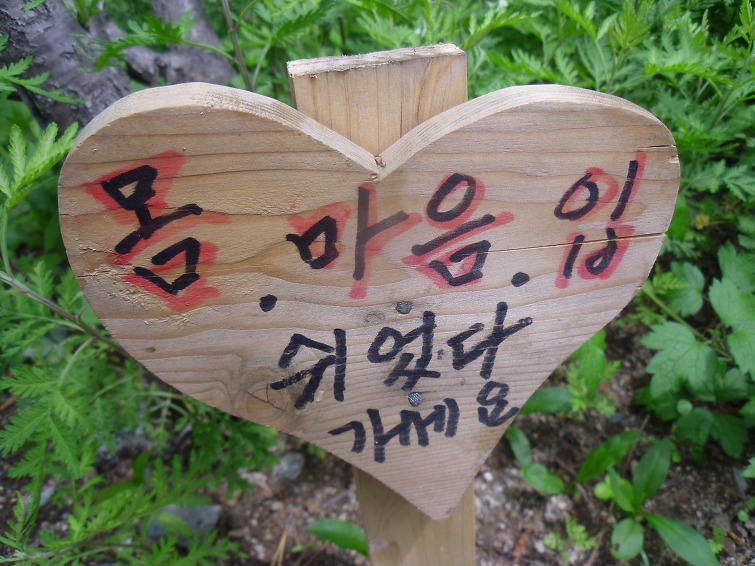 몸.마음.입
쉬었다
가세요